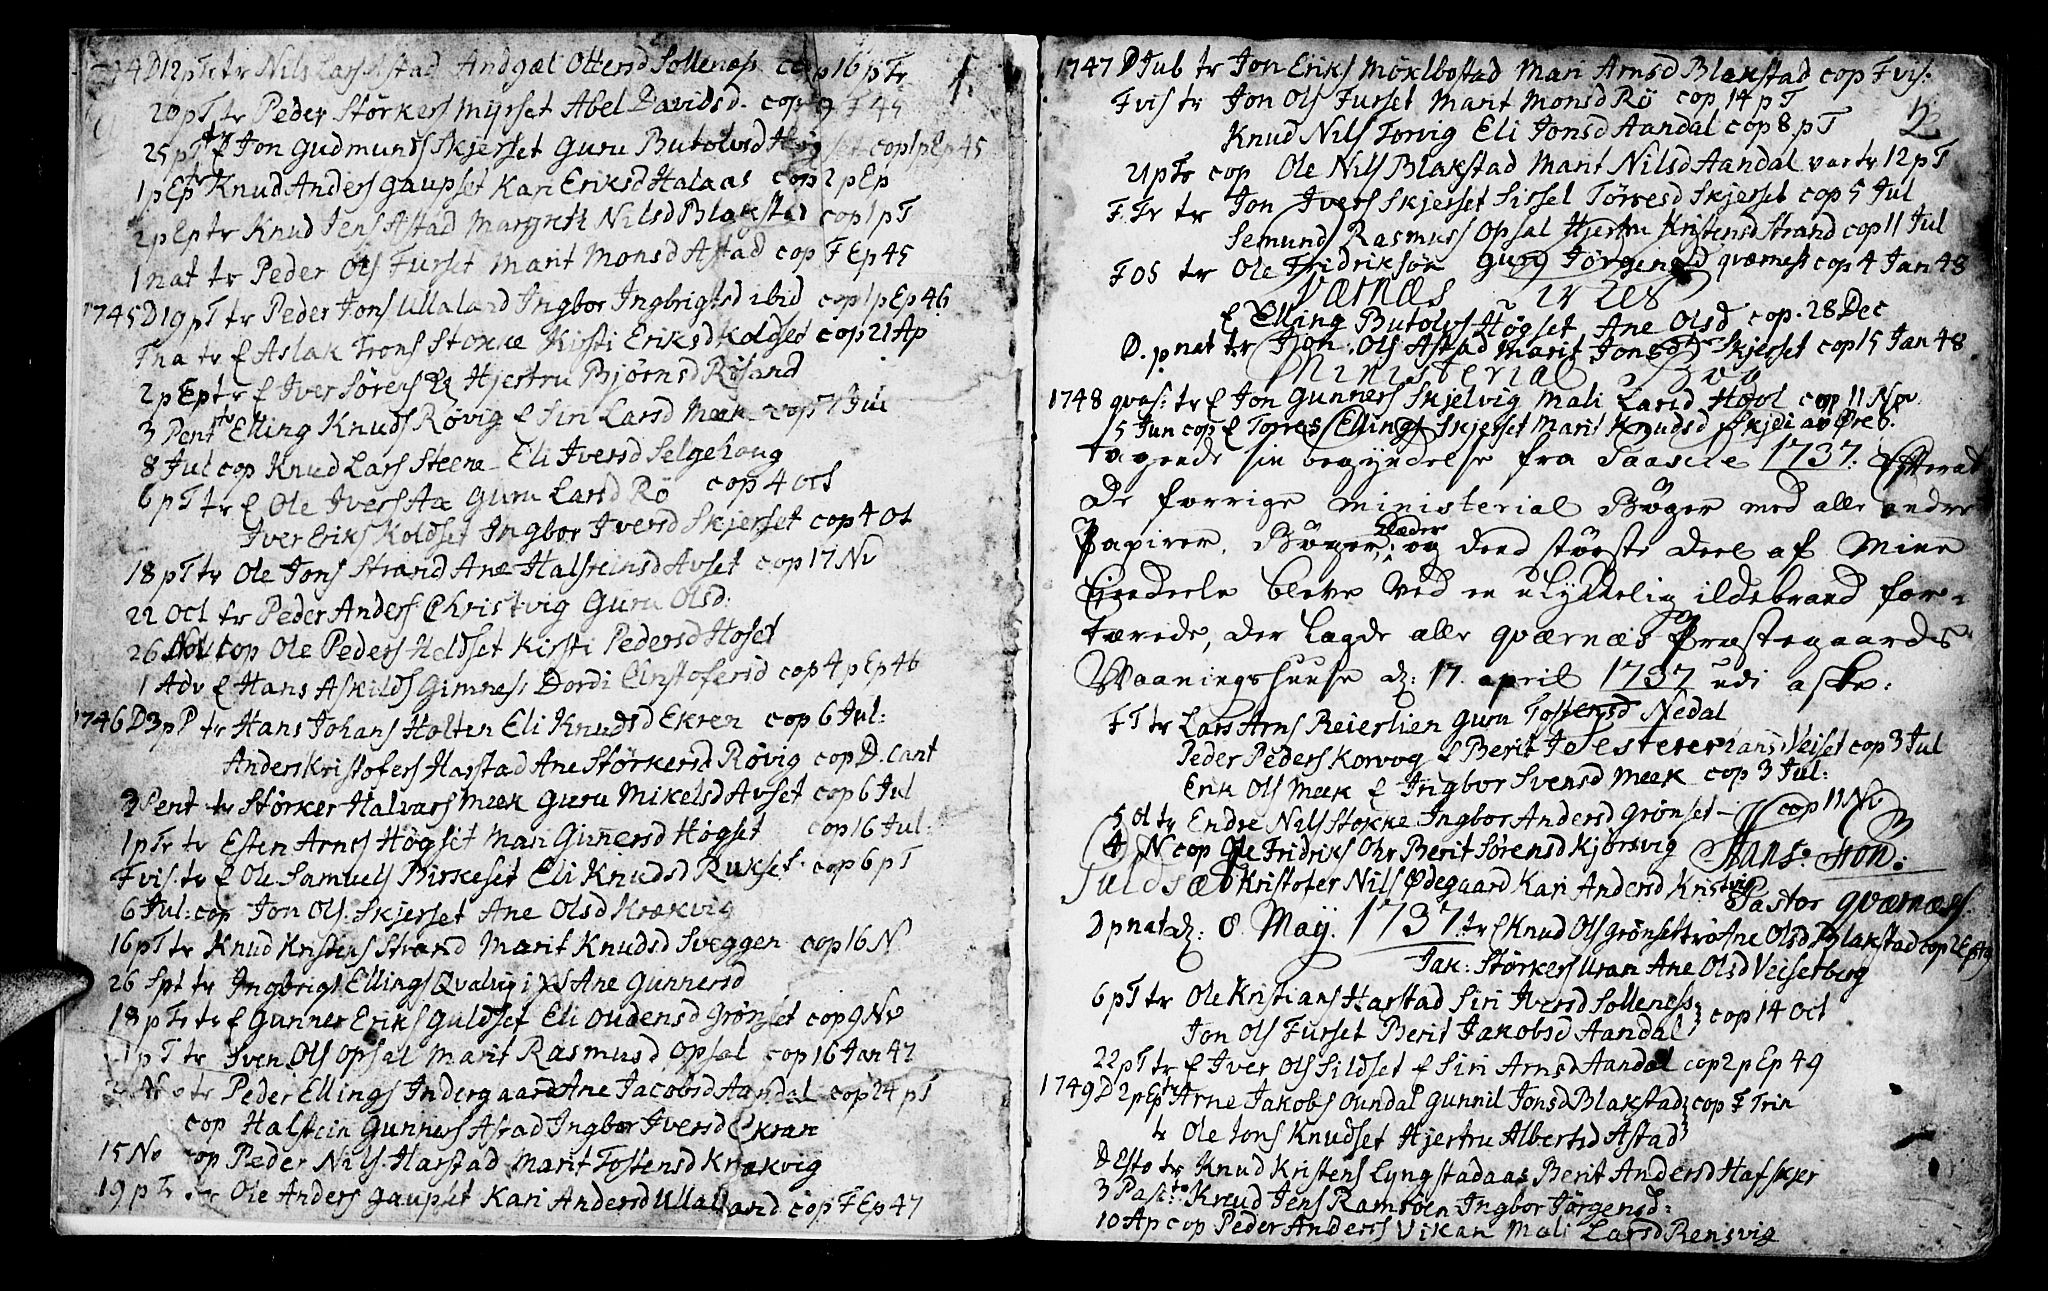 D12pTr tr Nils Lars Astad Andgæl Ottersd Sollenæs cop 16 pTr 1.
20pT tr Peder Størkers Myrset Abel Davidsd. cop
25pT tr f Jon Gudmunds Skjerset Guru Butolvsd Høgset cop 1pEp45
1pEp tr Knud Anders Gaupset Kari Eriksd Halaas cop 2pEp
2pEp tr Knud Jens Astad Margrete Nilsd Blakstad cop 1pT
1 nat tr Peder Ols Furset Marit Monsd Astad cop F Ep 45
1745 D19pT tr Peder Jons Ullaland Ingbor Ingbrigtsd ibid cop 1pEp46
Tna tr f Aslak Trons Stokke Kirsti Eriksd Kolset cop 21 Ap
2pEp tr f Iver Sørens Hjestru Bjørnsd Røsand
3 Pent tr Elling Knuds Røvig f Siri Larsd Meek cop 7 Jul
8 Jul cop Knud Lars Steene Eli Iversd Selgehoug
6pT tr f Ole Ivers Aa Guru Larsd Rø cop 4 Oct
Iver Eriks Koldset Ingbor Iversd Skjerset cop 4 Ot
18pT tr Ole Jons Strand Ane Halsteinsd Avset cop 17 Nv
22 Oct tr Peder Anders Christvig Guru Olsd.
26 Nov cop Ole Peders Heldset Kirsti Pedersd Hoset
1 Adv f Hans Askilds Gimnes Dordi Christofersd cop 4pEp46
1746 D3pP tr Hans Johans Holten Eli Knudsd Ekren cop 6 Jul:
Anders Kristofers Harstad Ane Størkersd Røvig cop D. Cant
2 Pent tr Størker Halvars Meek Guru Mikelsd Avset cop 6 Jul
1pTr tr Esten Arnes Høgset Mari Gunnersd Høgset cop 16 Jul:
F vis: tr f Ole Samuels Birkeset Eli Knudsd Rukset: cop 6pT
6 Jul: cop Jon Ols Skjerset Ane Olsd Krækvig
16pT tr Knud Kristens Strand Marit Knudsd Sveggen cop 16 N
26 Spt tr Ingbrigt Ellings Qvalvig Ane Gunnersd
18pTr tr f Gunner Eriks Guldset Eli Oudensd Grønset cop 9 Nv
1pT tr Sven Ols Opsal Marit Rasmusd Opsal cop 16 Jan 47
tr Peder Ellings Indergaard Ane Jacobsd Aandal cop 24 pT
cop Halstein Gunners Astad Ingbor Iversd Ekran
15 Nv cop Peder Nils Harstad Marit Tostensd Krækvig
19pTr tr Ole Anders Gaupset Kari Andersd Ullaland cop F Ep 47
1747 D Jub tr Jon Eriks Møklbostad Mari Arnsd Blakstad cop F vis: 2
F vis tr Jon Ols Furset Marit Monsd Rø cop 14 pT
Knud Nils Torvig Eli Jonsd Aandal cop 8 pT
21pTr cop Ole Nils Blakstad Marit Nilsd Aandal var tr 12 pT
F. Tr tr Jon Ivers Skjerset Sissel Torresd Skjerset cop 5 Jul
Semund Rasmuss Opsal Hjertru Kristensd Strand cop 11 Jul
F OS tr Ole Fridriksøn Guru Jørgensd Qværnes cop 4 Jan 48
Værnæs
f Elling Butolvs Høgset Ane Olsd cop. 28 Dec
D. p. nat tr Jon Ols Astad Marit Jonsd Skjerset cop 15 Jan 48
Ministerial Bog
1748 qvas: tr f Jon Gunners Skjelvig Mali Larsd Hovl cop 11 Nov
5 Jun cop f Torres Ellings Skjerset Marit Knudsd Skjei av Øreb.
tagende sin begyndelse fra Paaske 1737. Efterat
De forrige Ministerial Bøger med alle andre
Papirer, Bøger, Klæder og deend største Deel af Mine
Eiendeele bleve ved en ulykkelig ildebrand for-
tærede, der lagde alle Qværnæs Præstegaards
Vaaningshuuse d: 17. april 1737 udi aske:
F T tr Lars Arns Reierlien Guru Tostensd Nedal
Peder Peders Korvog f Berit Veiset cop 3 Jul
Erik Ols Meek f Ingbor Svensd Meek cop 3 Jul:
5 Ot tr Endre Nils Stokke Ingbor Andersd Grønset cop 11 Nv
4 N cop Ole Fridriks Ohr Berit Sørensd Kjørsvig Hans:
Guldsæt Kristofer Nils Ødegaard Kari Andersd Kristvig Pastor Qværnæs.
D p nat d: 8 May. 1737. tr f Knud Ols Grønset Ane Olsd Blakstad cop 2 Ep 49
Jak: Størkers Uran Ane Olsd Veisetberg
6pT tr Ole Kristians Harstad Siri Iversd Sollenæs cop 14 Oct
Jon Ols Furset Berit Jakobsd Aandal
22pT tr f Iver Ols Sildset f Siri Arnsd Aandal cop 2pEp 49
1749 D 2pEp tr Arne Jakobs Oundal Gunnil Jonsd Blakstad cop F Trin
tr Ole Jons Knudset Hjertru Albertsd Astad
D Esto tr Knud Kristens Lyngstadaas Berit Andersd Hafskjer
3 Pask: tr Knud Jens Ramsøen Ingbor Jørgensd:
10 Ap cop Peder Anders Vikan Mali Larsd Rensvig